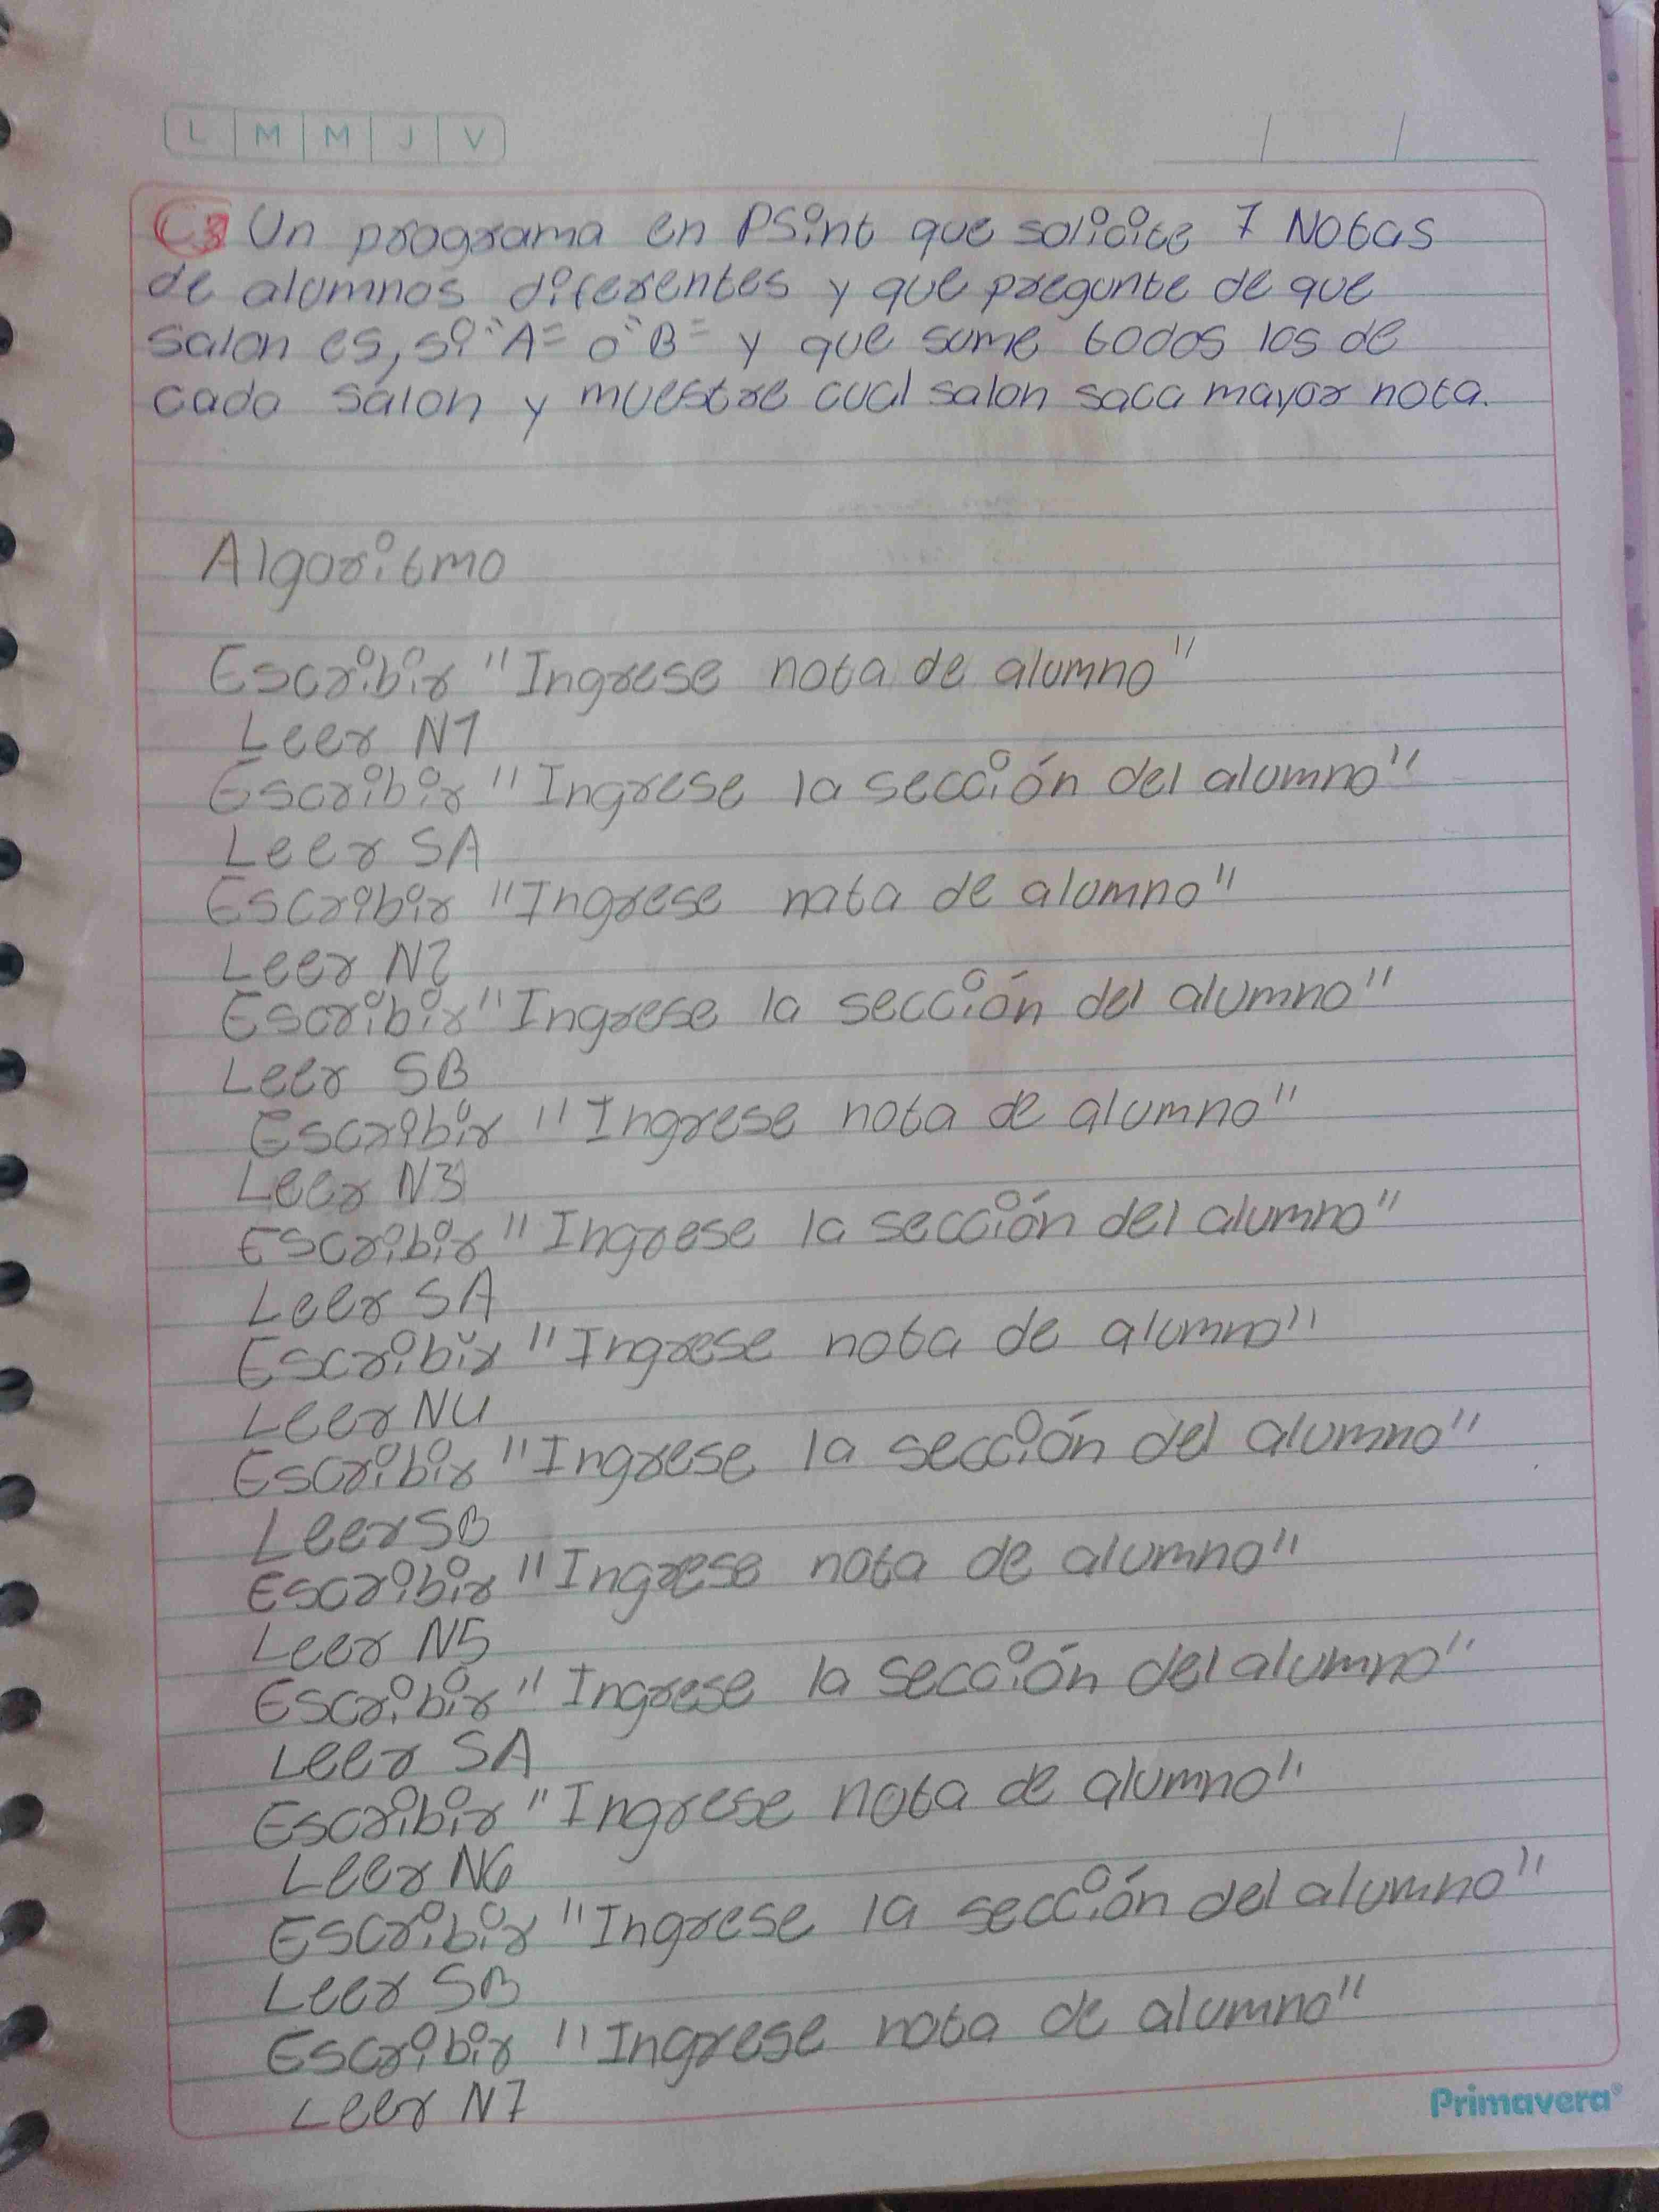 L M M J V
C3 Un programa en PSint que solicite 7 Notas
de alumnos diferentes y que pregunte de que
salon es, si "A" o "B" y que sume todos los de
cada salon y muestre cual salon saca mayor nota.
Algoritmo
Escribir "Ingrese nota de alumno"
Leer N1
Escribir "Ingrese la sección del alumno"
Leer SA
Escribir "Ingrese nata de alumno"
Leer N2
Escribir "Ingrese la sección del alumno"
Leer SB
Escribir "Ingrese nota de alumno"
Leer N3
Escribir "Ingrese la sección del alumno"
Leer SA
Escribir "Ingrese nota de alumno"
Leer N4
Escribir "Ingrese la sección del alumno"
Leer SB
Escribir "Ingrese nota de alumno"
Leer N5
Escribir "Ingrese la sección del alumno"
Leer SA
Escribir "Ingrese nota de alumno"
Leer N6
Escribir "Ingrese la sección del alumno"
Leer SB
Escribir "Ingrese nota de alumno"
Leer N7
Primavera®